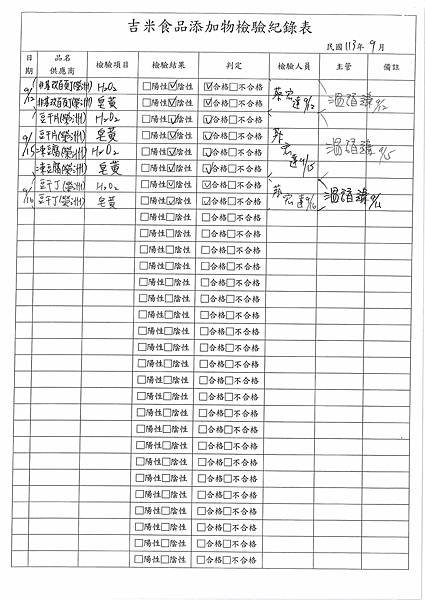 吉米食品添加物檢驗紀錄表
民國 113 年 9 月
日期 品名 供應商 檢驗項目 檢驗結果 判定 檢驗人員 主管 備註
9/12 H2O2 □陽性☑陰性 ☑合格□不合格 蔡宏達9/12 9/12
皂黃 □陽性☑陰性 ☑合格□不合格
豆干片(榮洲) H2O2 □陽性☑陰性 ☑合格□不合格
9/15 豆干片(榮洲) 皂黃 □陽性☑陰性 ☑合格□不合格 蔡宏達9/15 9/15
凍豆腐(榮洲) H2O2 □陽性☑陰性 ☑合格□不合格
凍豆腐(榮洲) 皂黃 □陽性☑陰性 ☑合格□不合格
豆干丁(榮洲) H2O2 □陽性☑陰性 ☑合格□不合格
豆干丁(榮洲) 皂黃 □陽性☑陰性 ☑合格□不合格 蔡宏達
□陽性□陰性 □合格□不合格
□陽性□陰性 □合格□不合格
□陽性□陰性 □合格□不合格
□陽性□陰性 □合格□不合格
□陽性□陰性 □合格□不合格
□陽性□陰性 □合格□不合格
□陽性□陰性 □合格□不合格
□陽性□陰性 □合格□不合格
□陽性□陰性 □合格□不合格
□陽性□陰性 □合格□不合格
□陽性□陰性 □合格□不合格
□陽性□陰性 □合格□不合格
□陽性□陰性 □合格□不合格
□陽性□陰性 □合格□不合格
□陽性□陰性 □合格□不合格
□陽性□陰性 □合格□不合格
□陽性□陰性 □合格□不合格
□陽性□陰性 □合格□不合格
□陽性□陰性 □合格□不合格
□陽性□陰性 □合格□不合格
□陽性□陰性 □合格□不合格
□陽性□陰性 □合格□不合格